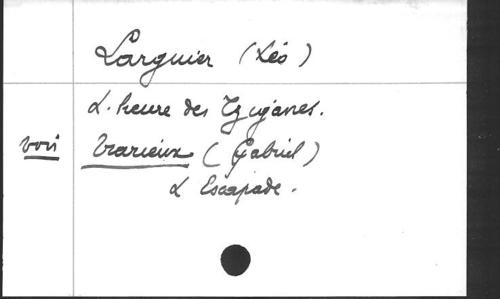 Larguier (Léo)
L'heure des Tziganes.
voir Trarieux (Gabriel)
L'Escapade.